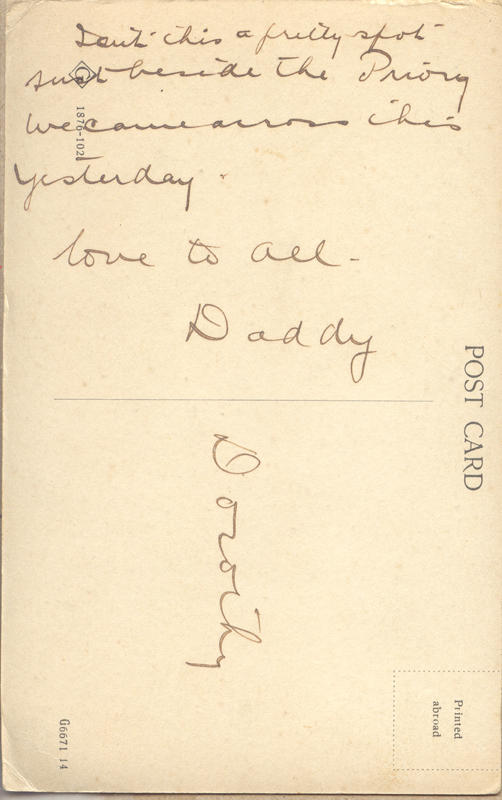 Isnt this a pretty spot
just beside the Priory
We came across this
yesterday.
love to all -
Daddy
POST CARD
Dorothy
Printed
abroad
1876-102
G6671 14